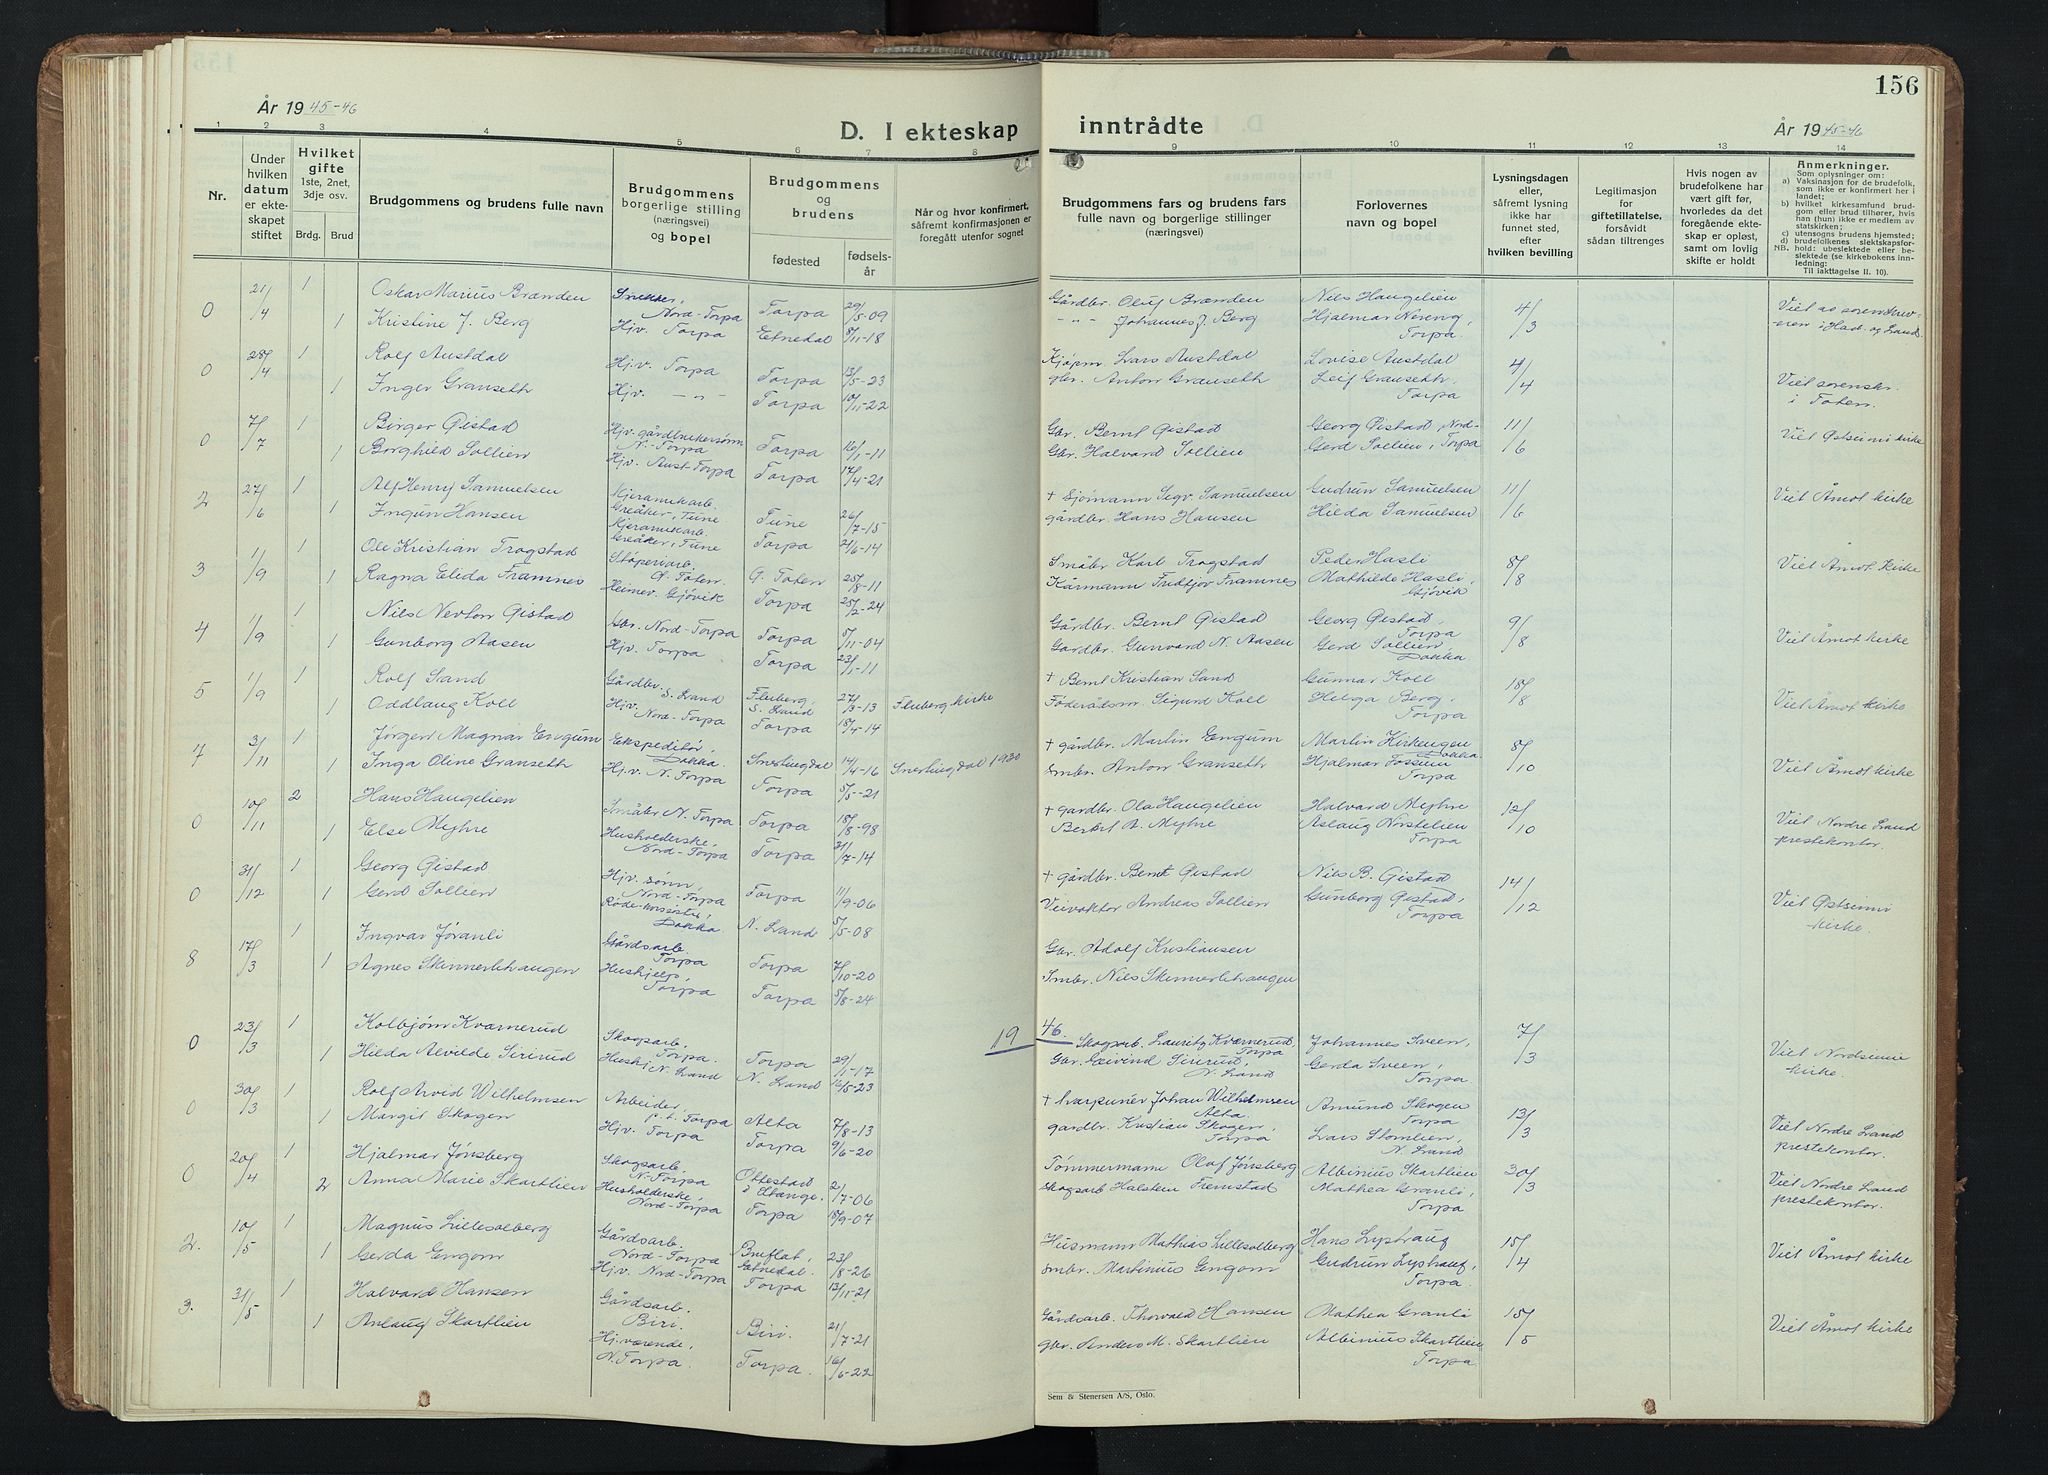 156
År 1945-46
D. I ekteskap inntrådte
År 1945-46
1 2 3 4 5 6 7 8 9 10 11 12 13 14
Nr.
Under hvilken datum er ekteskapet stiftet
Hvilket gifte 1ste, 2net, 3dje osv.
Brdg. Brud
Brudgommens og brudens fulle navn
Brudgommens borgerlige stilling (næringsvei) og bopel
Brudgommens og brudens
fødested
fødselsår
Når og hvor konfirmert, såfremt konfirmasjonen er foregått utenfor sognet
Brudgommens fars og brudens fars fulle navn og borgerlige stillinger (næringsvei)
Forlovernes navn og bopel
Lysningsdagen eller, såfremt lysning ikke har funnet sted, efter hvilken bevilling
Legitimasjon for giftetillatelse, forsåvidt sådan tiltrenges
Hvis nogen av brudefolkene har vært gift før, hvorledes da det foregående ekteskap er opløst, samt om lovlig skifte er holdt
Anmerkninger.
Som oplysninger om:
a) Vaksinasjon for de brudefolk, som ikke er konfirmert her i landet;
b) hvilket kirkesamfund brudgom eller brud tilhører, hvis han (hun) ikke er medlem av statskirken;
c) utensogns brudens hjemsted;
d) brudefolkenes slektskapsforhold: ubeslektede eller beslektede (se kirkebokens innledning:
NB. Til iakttagelse II. 10).
0 21/4 1 Oskar Marius Brænden Snekker, Nord-Torpa Torpa 29/5-09 Gårdbr. Oluf Brænden Nils Haugelien 4/3
1 Kristine J. Berg Hjv. Torpa Etnedal 8/11-18 -"- Johannes J. Berg Hjalmar Nereng, Torpa
0 28/4 1 Rolf Austdal Hj.v. Torpa Torpa 13/5-23 Kjøpm. Lars Austdal Lovise Austdal 4/4 Viet sorenskr. i Toten.
1 Inger Granseth Hjv. -"- Torpa 10/11-22 gbr. Anton Granseth Leif Granseth, Torpa
0 7/7 1 Birger Gistad Hjv. gårdbrukersønn N.-Torpa Torpa 16/1-11 Gbr. Bernt Gistad Georg Gistad, Nord- 11/6 Viet Østsinni kirke
1 Borghild Sollien Hjv. Aust-Torpa Torpa 17/4-21 Gbr. Halvard Sollien Gerd Sollien, Torpa
2 27/6 1 Alf Henry Samuelsen Kjeramikarb. Greåker, Tune Tune 26/7-15 + Sjømann Sigv. Samuelsen Gudrun Samuelsen 11/6 Viet Åmot kirke
1 Ingun Hansen Kjeramikarb. Greåker, Tune Torpa 21/6-14 gårdbr. Hans Hansen Hilda Samuelsen
3 1/9 1 Ole Kristian Trogstad Støperiarb. Ø. Toten Ø. Toten 25/8-11 Småbr. Karl Trogstad Peder Hasli 8/8 Viet Åmot kirke
1 Ragna Elida Framnes Heimev. Gjøvik Torpa 25/2-24 Kårmann Fridtjov Framnes Mathilde Hasli, Gjøvik
4 1/9 1 Nils Nevton Gistad Gbr. Nord-Torpa Torpa 5/11-04 Gårdbr. Bernt Gistad Georg Gistad, Torpa 9/8 Viet Åmot kirke
1 Gunborg Aasen Hjv. Torpa Torpa 23/1-11 Gardbr. Gunvard N. Aasen Gerd Sollien, Dokka
5 1/9 1 Rolf Sand Gårdbr. S. Land Fluberg, S. Land 27/3-13 Fluberg kirke + Bernt Kristian Sand Gunnar Koll 18/8 Viet Åmot kirke
1 Oddlaug Koll Hjv. Nord-Torpa Torpa 18/4-14 Føderådsm. Sigurd Koll Helga Berg, Torpa
7 3/11 1 Jørgen Magnar Engum Ekspeditør, Dokka Snertingdal 14/4-16 Snertingdal 1930 + gårdbr. Martin Engum Martin Kirkengen Dokka 8/10 Viet Åmot kirke
1 Inga Oline Granseth Hj.v. N. Torpa Torpa 5/5-21 smbr. Anton Granseth Hjalmar Fossum Torpa
0 10/11 2 Hans Haugelien Småbr. N. Torpa Torpa 18/8-98 + gardbr. Ola Haugelien Halvard Myhre 12/10 Viet Nordre Land prestekontor.
1 Else Myhre Husholderske, Nord-Torpa Torpa 21/7-14 Aslaug Norstelien Torpa
0 31/12 1 Georg Gistad Hjv. sønn, Nord-Torpa Torpa 11/9-06 + gårdbr. Bernt Gistad Nils B. Gistad 14/12 Viet Østsinni kirke.
1 Gerd Sollien Røde-korssøster, Dokka N. Land 5/5-08 Veivokter Andreas Sollien Gunborg Gistad, Torpa
8 17/3 1 Ingvar Jøranli Gårdsarb. Torpa Torpa 7/10-20 Gbr. Adolf Kristiansen
1 Agnes Skinnerlihaugen Hushjelp, Torpa Torpa 5/8-24 Smbr. Nils Skinnerlihaugen
1946
0 23/3 1 Kolbjørn Kværnerud Skogsarb. Torpa. Torpa 29/1-17 Skogsarb. Lauritz Kværnerud Torpa Johannes Sveen, 7/3 Viet Nordsinni kirke.
1 Hilda Alvilde Sirirud Hushj. N. Land N. Land 16/5-23 Gbr. Eivind Sirirud, N. Land Gerda Sveen, Torpa
0 30/3 1 Rolf Arvid Wilhelmsen Arbeider, p.t. Torpa Alta 7/8-13 + harpunér Johan Wilhelmsen Alta. Amund Skogen Torpa 13/3 Viet Nordre Land prestekontor.
1 Margit Skogen Hjv. Torpa Torpa 9/6-20 gardbr. Kristian Skogen, Torpa Lars Stomlien, N. Land
0 20/4 1 Hjalmar Jønsberg Skogsarb. N-Torpa Ottestad i Stange. 21/7-06 Tømmermann Olaf Jønsberg Albinius Skartlien 30/3 Viet Nordre Land prestekontor.
2 Anna Marie Skartlien Husholderske, Nord-Torpa Torpa 18/9-07 Skogsarb Halsten Fremstad Mathea Granli, Torpa
2. 10/5 1 Magnus Lillesolberg Gårdsarb. Nord-Torpa Bruflat, Etnedal. 23/8-26 Husmann Mathias Lillesolberg Hans Lystraug 15/4 Viet Åmot kirke
1 Gerda Engom Hjv. Nord-Torpa Torpa 13/11-21 smbr. Martinius Engom Gudrun Lystraug, Torpa.
3. 31/5 1 Halvard Hansen Gårdsarb. Biri Biri. 21/7-21 Gårdsarb. Thorvald Hansen Mathea Granli 15/5 Viet Åmot kirke
1 Aslaug Skartlien Hj.værende, N. Torpa. Torpa. 16/6-22 gbr. Anders M. Skartlien Albinius Skartlien Torpa
Sem & Stenersen A/S, Oslo.